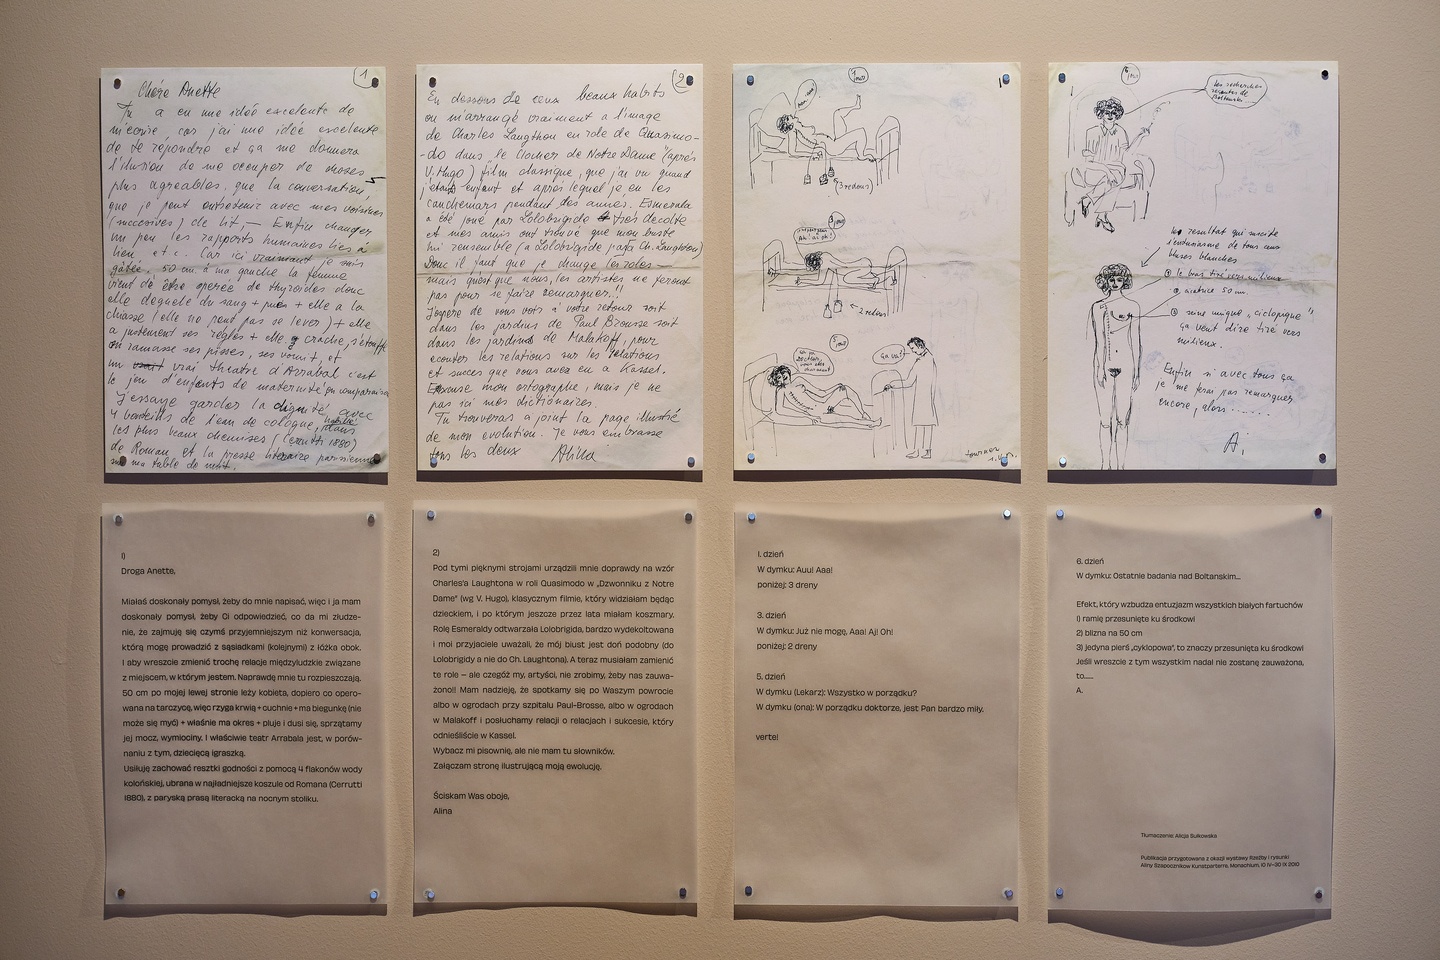 1
Chère Anette
Tu a eu une idée excelente de
m'écrire, car j'ai une idée excelente
de te repondre et ça me donnera
l'ilusion de me occuper de choses
plus agreables, que la conversation
que je peut entretenir avec mes voisines
(succesives) de lit, — Enfin changer
un peu les rapports humaines liés à
lieu etc. Car ici vraiment je suis
gâtée. 50 cm. à ma gauche la femme
vient de être operée de thyroïdes donc
elle deguele du sang + pues + elle a la
chiasse (elle ne peut pas se lever) + elle
a justement ses règles + elle crache, s'étouffe
on ramasse ses pisses, ses vomit, et
un vrai theatre d'Arrabal c'est
le jeu d'enfants de maternité en comparaison
J'essaye garder la dignité avec
4 bouteilles de l'eau de cologne, habillé dans
les plus beaux chemises (Cerutti 1880)
de Roman et la presse literaire parisienne
sur ma table de nuit.
2
En dessous de ceux beaux habits
on m'arrangé vraiment a l'image
de Charles Laugthon en role de Quasimo-
-do dans "le Clocher de Notre Dame" (après
V. Hugo) film classique, que j'ai vu quand
j'etais enfant et après lequel je eu les
cauchemars pendant des annés. Esmerala
a été joué par Lolobrigide très decolté
et mes amis ont trouvé que mon buste
lui resemble (a Lolobrigide pas a Ch. Laugthon)
Donc il faut que je change les roles —
mais qu'est que nous, les artistes ne feront
pas pour se faire remarquer!!
J'espère de vous voir à votre retour soit
dans les jardins de Paul Brousse soit
dans les jardins de Malakoff, pour
ecouter les relations sur les relations
et succes que vous avez eu a Kassel.
Excuse mon ortographe, mais je ne
pas ici mes dictionaires.
Tu trouveras a joint la page illustré
de mon evolution. Je vous embrasse
tous les deux Alina
1 jour
(3 redons)
3 jour
← 2 redons
5 jour
ça va?
tourner
6 jour
Les recherches
recentes de
Boltanski
les resultat qui suscite
l'entusiasme de tous une
bluses blanches
① le bras tiré vers milieux
② cicatrice 50 cm.
③ seine unique „ciclopique"
ça veut dire tiré vers
milieux.
Enfin si avec tous ça
je me ferai pas remarquer
encore, alors .......
A.
1)
Droga Anette,
Miałaś doskonały pomysł, żeby do mnie napisać, więc i ja mam
doskonały pomysł, żeby Ci odpowiedzieć, co da mi złudze-
nie, że zajmuję się czymś przyjemniejszym niż konwersacja,
którą mogę prowadzić z sąsiadkami (kolejnymi) z łóżka obok.
I aby wreszcie zmienić trochę relacje międzyludzkie związane
z miejscem, w którym jestem. Naprawdę mnie tu rozpieszczają.
50 cm po mojej lewej stronie leży kobieta, dopiero co opero-
wana na tarczycę, więc rzyga krwią + cuchnie + ma biegunkę (nie
może się myć) + właśnie ma okres + pluje i dusi się, sprzątamy
jej mocz, wymiociny. I właściwie teatr Arrabala jest, w porów-
naniu z tym, dziecięcą igraszką.
Usiłuję zachować resztki godności z pomocą 4 flakonów wody
kolońskiej, ubrana w najładniejsze koszule od Romana (Cerrutti
1880), z paryską prasą literacką na nocnym stoliku.
2)
Pod tymi pięknymi strojami urządzili mnie doprawdy na wzór
Charles'a Laughtona w roli Quasimodo w „Dzwonniku z Notre
Dame" (wg V. Hugo), klasycznym filmie, który widziałam będąc
dzieckiem, i po którym jeszcze przez lata miałam koszmary.
Rolę Esmeraldy odtwarzała Lolobrigida, bardzo wydekoltowana
i moi przyjaciele uważali, że mój biust jest doń podobny (do
Lolobrigidy a nie do Ch. Laughtona). A teraz musiałam zamienić
te role – ale czegóż my, artyści, nie zrobimy, żeby nas zauwa-
żono!! Mam nadzieję, że spotkamy się po Waszym powrocie
albo w ogrodach przy szpitalu Paul-Brosse, albo w ogrodach
w Malakoff i posłuchamy relacji o relacjach i sukcesie, który
odnieśliście w Kassel.
Wybacz mi pisownię, ale nie mam tu słowników.
Załączam stronę ilustrującą moją ewolucję.
Ściskam Was oboje,
Alina
1. dzień
W dymku: Auu! Aaa!
poniżej: 3 dreny
3. dzień
W dymku: Już nie mogę, Aaa! Aj! Oh!
poniżej: 2 dreny
5. dzień
W dymku (Lekarz): Wszystko w porządku?
W dymku (ona): W porządku doktorze, jest Pan bardzo miły.
verte!
6. dzień
W dymku: Ostatnie badania nad Boltanskim...
Efekt, który wzbudza entuzjazm wszystkich białych fartuchów
1) ramię przesunięte ku środkowi
2) blizna na 50 cm
3) jedyna pierś „cyklopowa", to znaczy przesunięta ku środkowi
Jeśli wreszcie z tym wszystkim nadal nie zostanę zauważona,
to......
A.
Tłumaczenie: Alicja Sułkowska
Publikacja przygotowana z okazji wystawy Rzeźby i rysunki
Aliny Szapocznikow Kunstparterre, Monachium, 10 IV–30 IX 2010